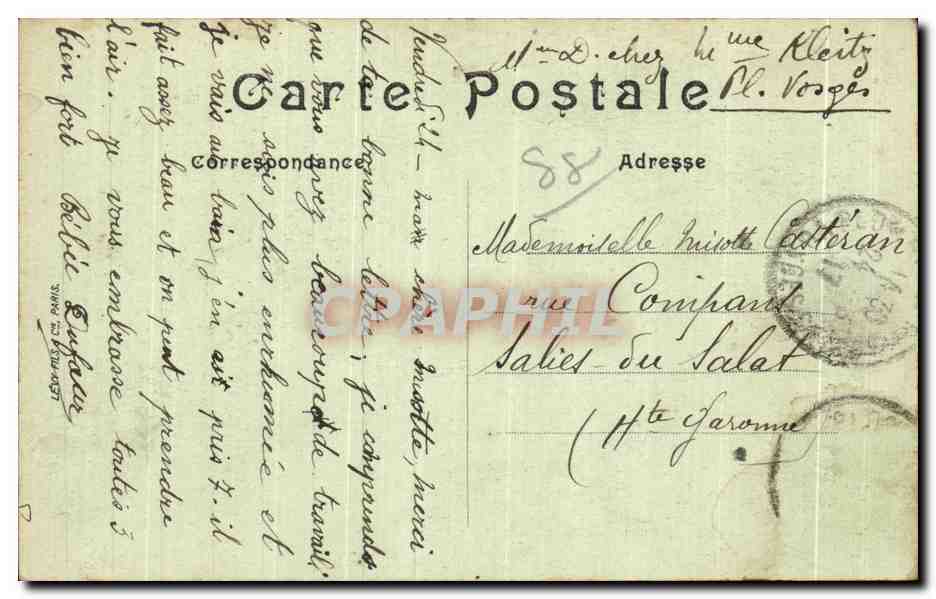 Mme D. chez Mme Kleitz
Pl. Vosges
Carte Postale
Correspondance
Adresse
88
Vendredi 24 - ma chère Misotte, merci
de ta bonne lettre, je comprends
que vous avez beaucoup de travail
je ne suis plus enrhumée et
je vais au bain j'en ait pris 7. il
fait assez beau et on peut prendre
l'air. je vous embrasse toutes 3
bien fort Bébée Dufaur
Mademoiselle Misotte Castéran
rue Compans
Salies-du-Salat
(Hte Garonne)
CPAPHIL